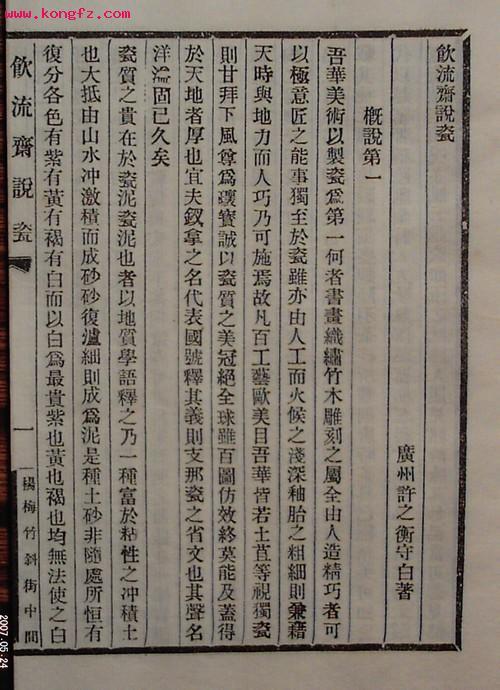 www.kongfz.com
飲流齋說瓷
廣州許之衡守白著
概說第一
吾華美術以製瓷爲第一何者書畫織繡竹木雕刻之屬全由人造精巧者可
以極意匠之能事獨至於瓷雖亦由人工而火候之淺深釉胎之粗細則兼藉
天時與地力而人巧乃可施焉故凡百工藝歐美目吾華皆若土苴等視獨瓷
則甘拜下風尊爲瓌寶誠以瓷質之美冠絕全球雖百圖仿效終莫能及蓋得
於天地者厚也宜夫釵拿之名代表國號釋其義則支那瓷之省文也其聲名
洋溢固已久矣
瓷質之貴在於瓷泥瓷泥也者以地質學語釋之乃一種富於粘性之沖積土
也大抵由山水沖激積而成砂砂復瀘細則成爲泥是種土砂非隨處所恒有
復分各色有紫有黃有褐有白而以白爲最貴紫也黃也褐也均無法使之白
飲流齋說瓷
一
楊梅竹斜街中間
2007.05.24